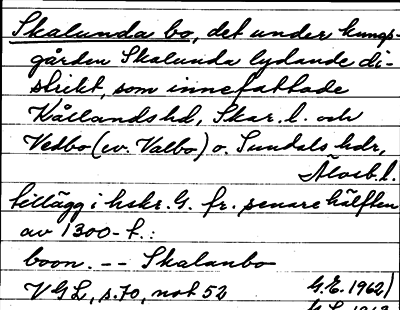 Skalunda bo, det under kungs-
gården Skalunda lydande di-
strikt, som innefattade
Kållands hd, Skar. l. och
Vedbo (ev. Valbo) o. Sundals hdr,
Älvsb. l.
tillägg i hskr. G. fr. senare hälften
av 1300-t.:
boon. -- Skalanbo
VGL, s. 70, not 52 G.E. 1962/